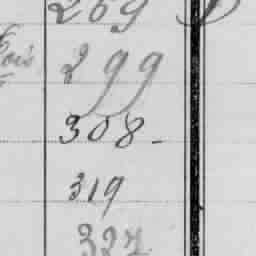 269
299
308-
319
327